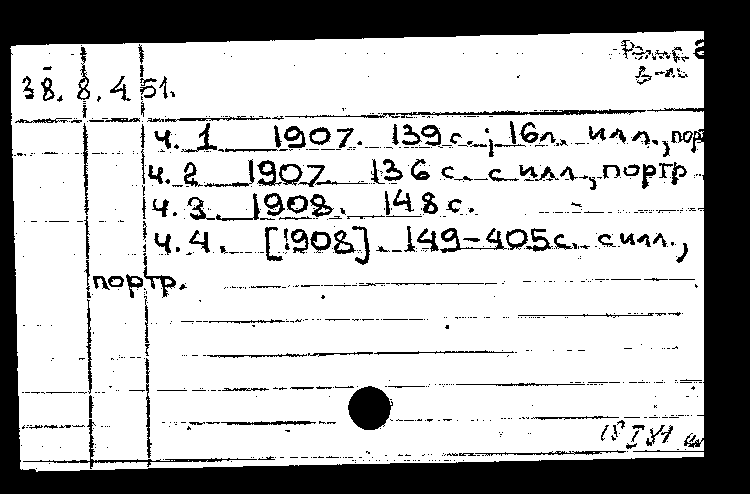 38. 8. 4 51.
ч. 1 1907. 139 с.; 16 л. илл., порт
ч. 2 1907. 136 с. с илл., портр
ч. 3. 1908. 148 с.
ч. 4. [1908]. 149-405 с. с илл.,
портр.
18 I 84